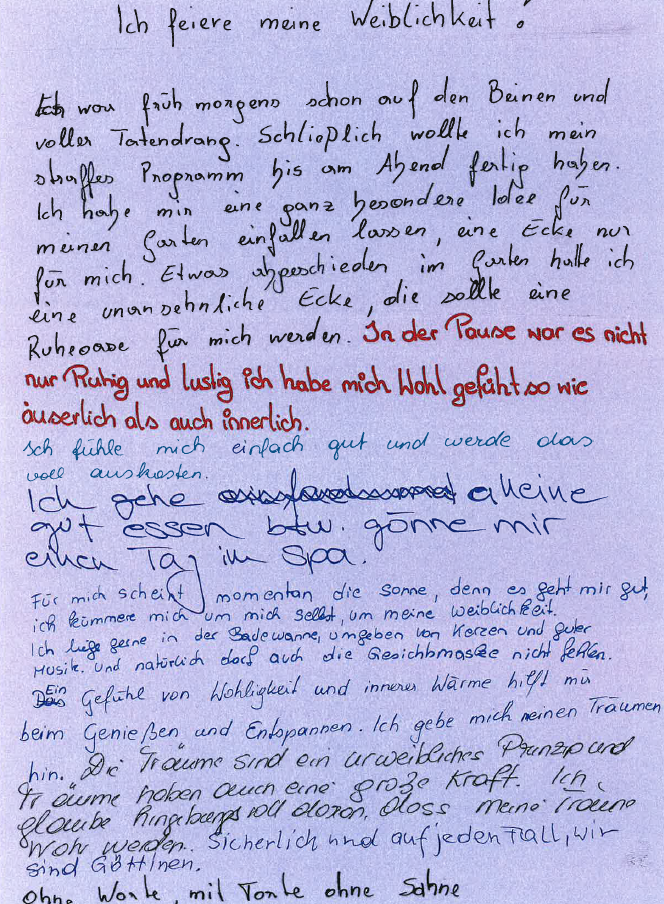 Ich feiere meine Weiblichkeit!
Ich war früh morgens schon auf den Beinen und
voller Tatendrang. Schließlich wollte ich mein
straffes Programm bis am Abend fertig haben.
Ich habe mir eine ganz besondere Idee für
meinen Garten einfallen lassen, eine Ecke nur
für mich. Etwas abgeschieden im Garten hatte ich
eine unansehnliche Ecke, die sollte eine
Ruheoase für mich werden. In der Pause war es nicht
nur Ruhig und lustig ich habe mich Wohl gefüht so wie
äuserlich als auch innerlich.
Ich fühle mich einfach gut und werde das
voll auskosten.
Ich gehe alleine
gut essen bzw. gönne mir
einen Tag im Spa.
Für mich scheint momentan die Sonne, denn es geht mir gut,
ich kümmere mich um mich selbst, um meine Weiblichkeit.
Ich liege gerne in der Badewanne, umgeben von Kerzen und guter
Musik. und natürlich darf auch die Gesichtsmaske nicht fehlen.
Ein Gefühl von Wohligkeit und innerer Wärme hilft mir
beim Genießen und Entspannen. Ich gebe mich meinen Träumen
hin. Die Träume sind ein urweibliches Prinzip und
Träume haben auch eine große Kraft. Ich
glaube hingebungsvoll daran, dass meine Träume
wahr werden. Sicherlich und auf jeden Fall, wir
sind Göttinen.
Ohne Worte, mit Torte ohne Sahne